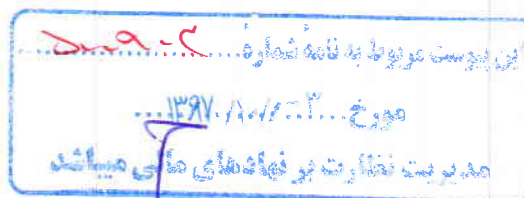 این پیوست مربوط به نامه شماره
مورخ ۱۳۹۷/۱۰/۰۳
مدیریت نظارت بر نهادهای مالی میباشد